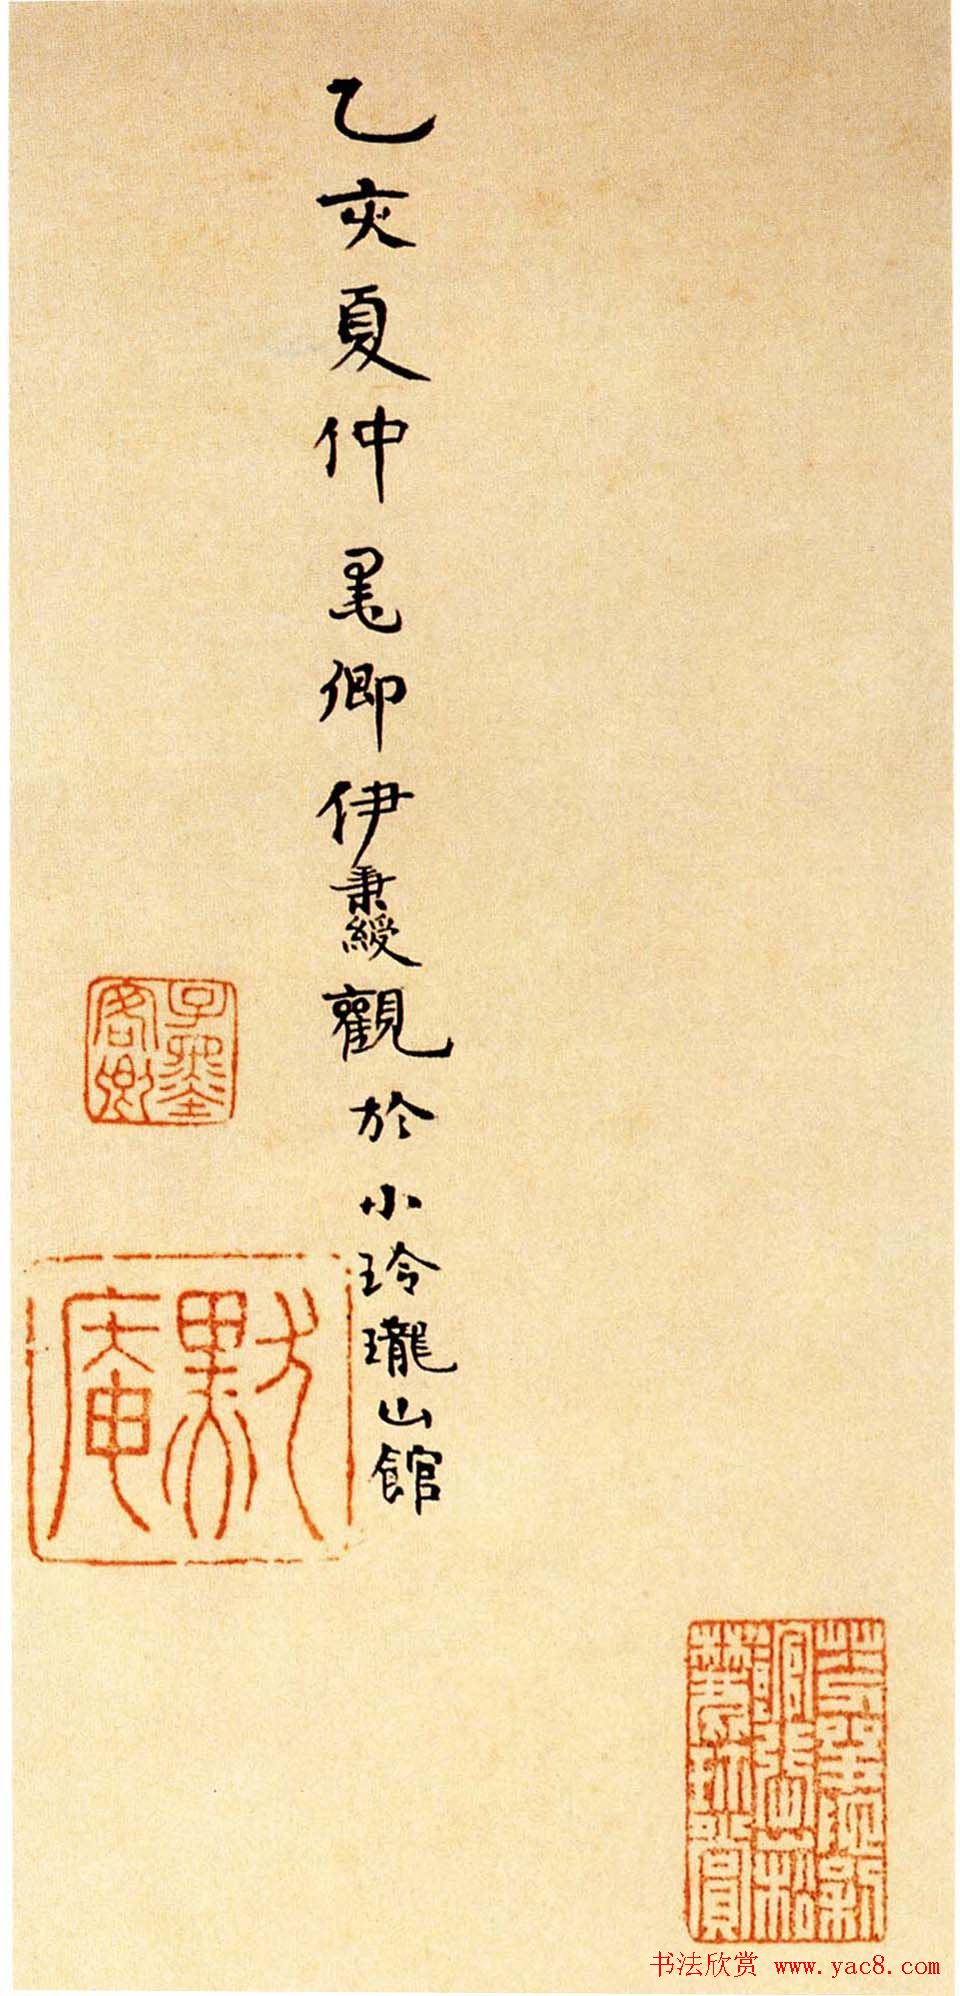 乙亥夏仲墨卿伊秉綬觀於小玲瓏山館
子墨客卿
默庵
书法欣赏 www.yac8.com